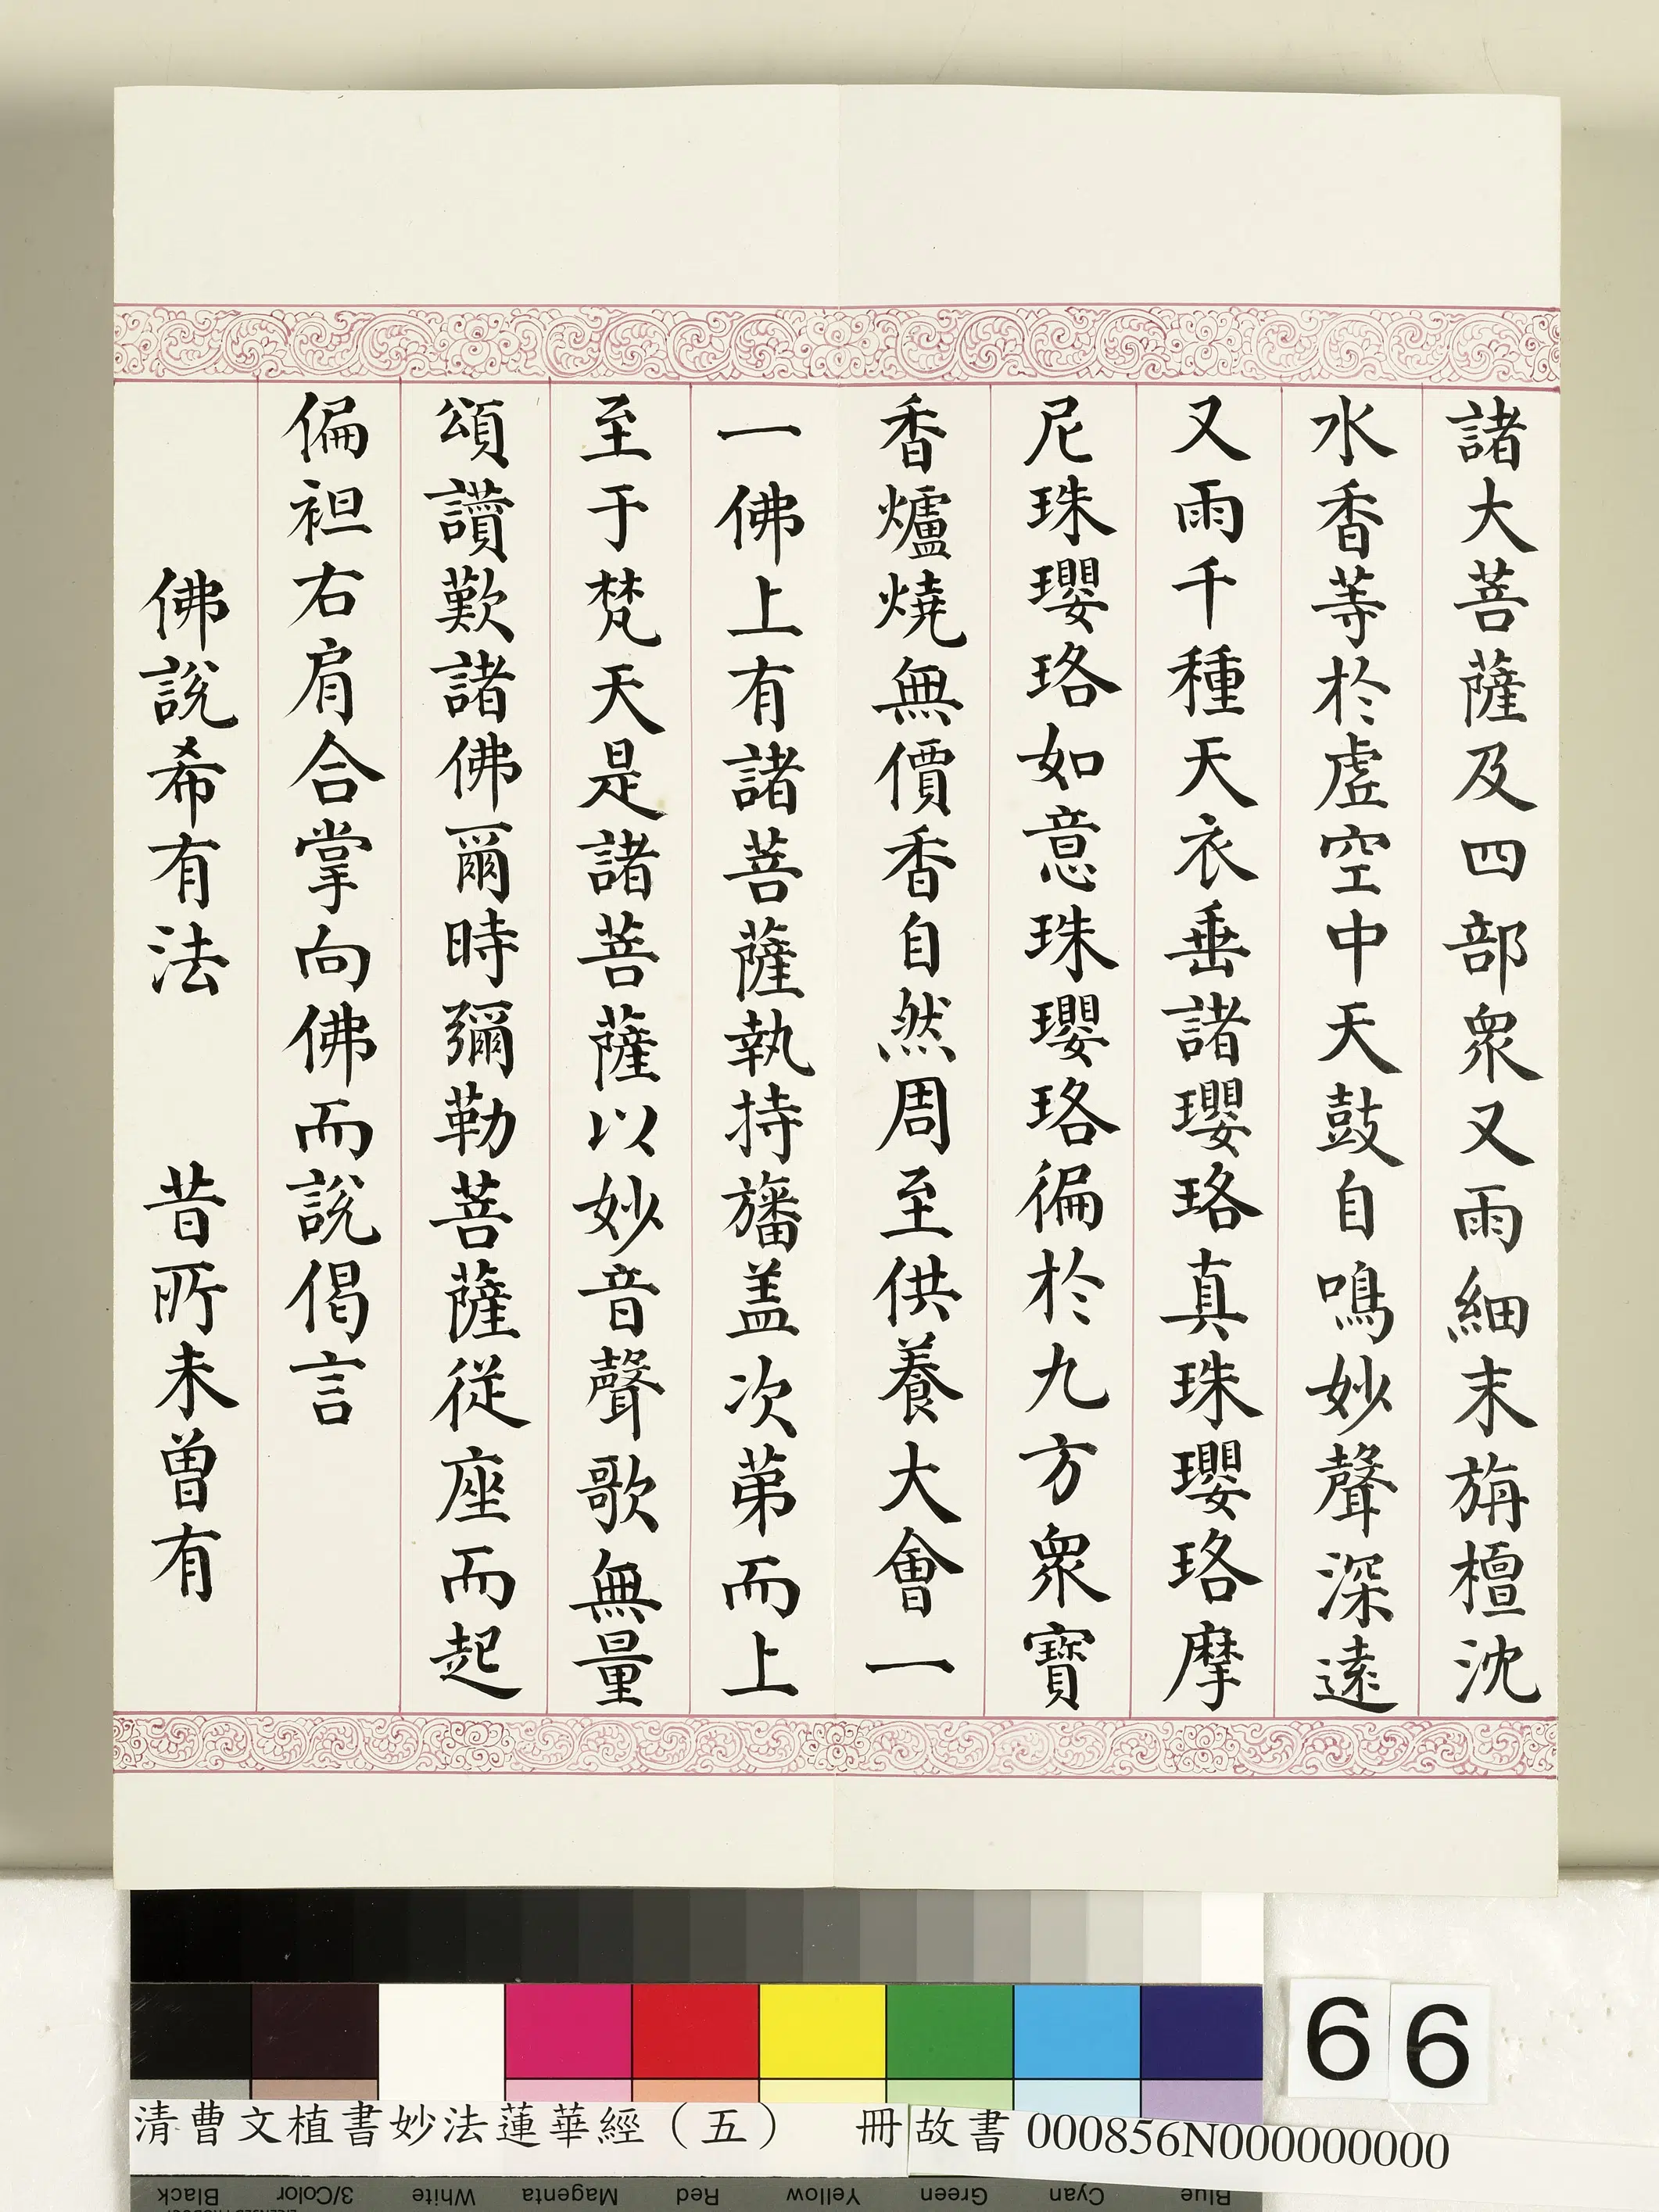 諸大菩薩及四部衆又雨細末旃檀沈
水香等於虛空中天鼓自鳴妙聲深遠
又雨千種天衣垂諸瓔珞真珠瓔珞摩
尼珠瓔珞如意珠瓔珞徧於九方衆寶
香爐燒無價香自然周至供養大會一
一佛上有諸菩薩執持旛盖次第而上
至于梵天是諸菩薩以妙音聲歌無量
頌讚歎諸佛爾時彌勒菩薩從座而起
偏袒右肩合掌向佛而說偈言
佛說希有法 昔所未曾有
66
清曹文植書妙法蓮華經（五） 冊 故書 000856N000000000
Black 3/Color White Magenta Red Yellow Green Cyan Blue